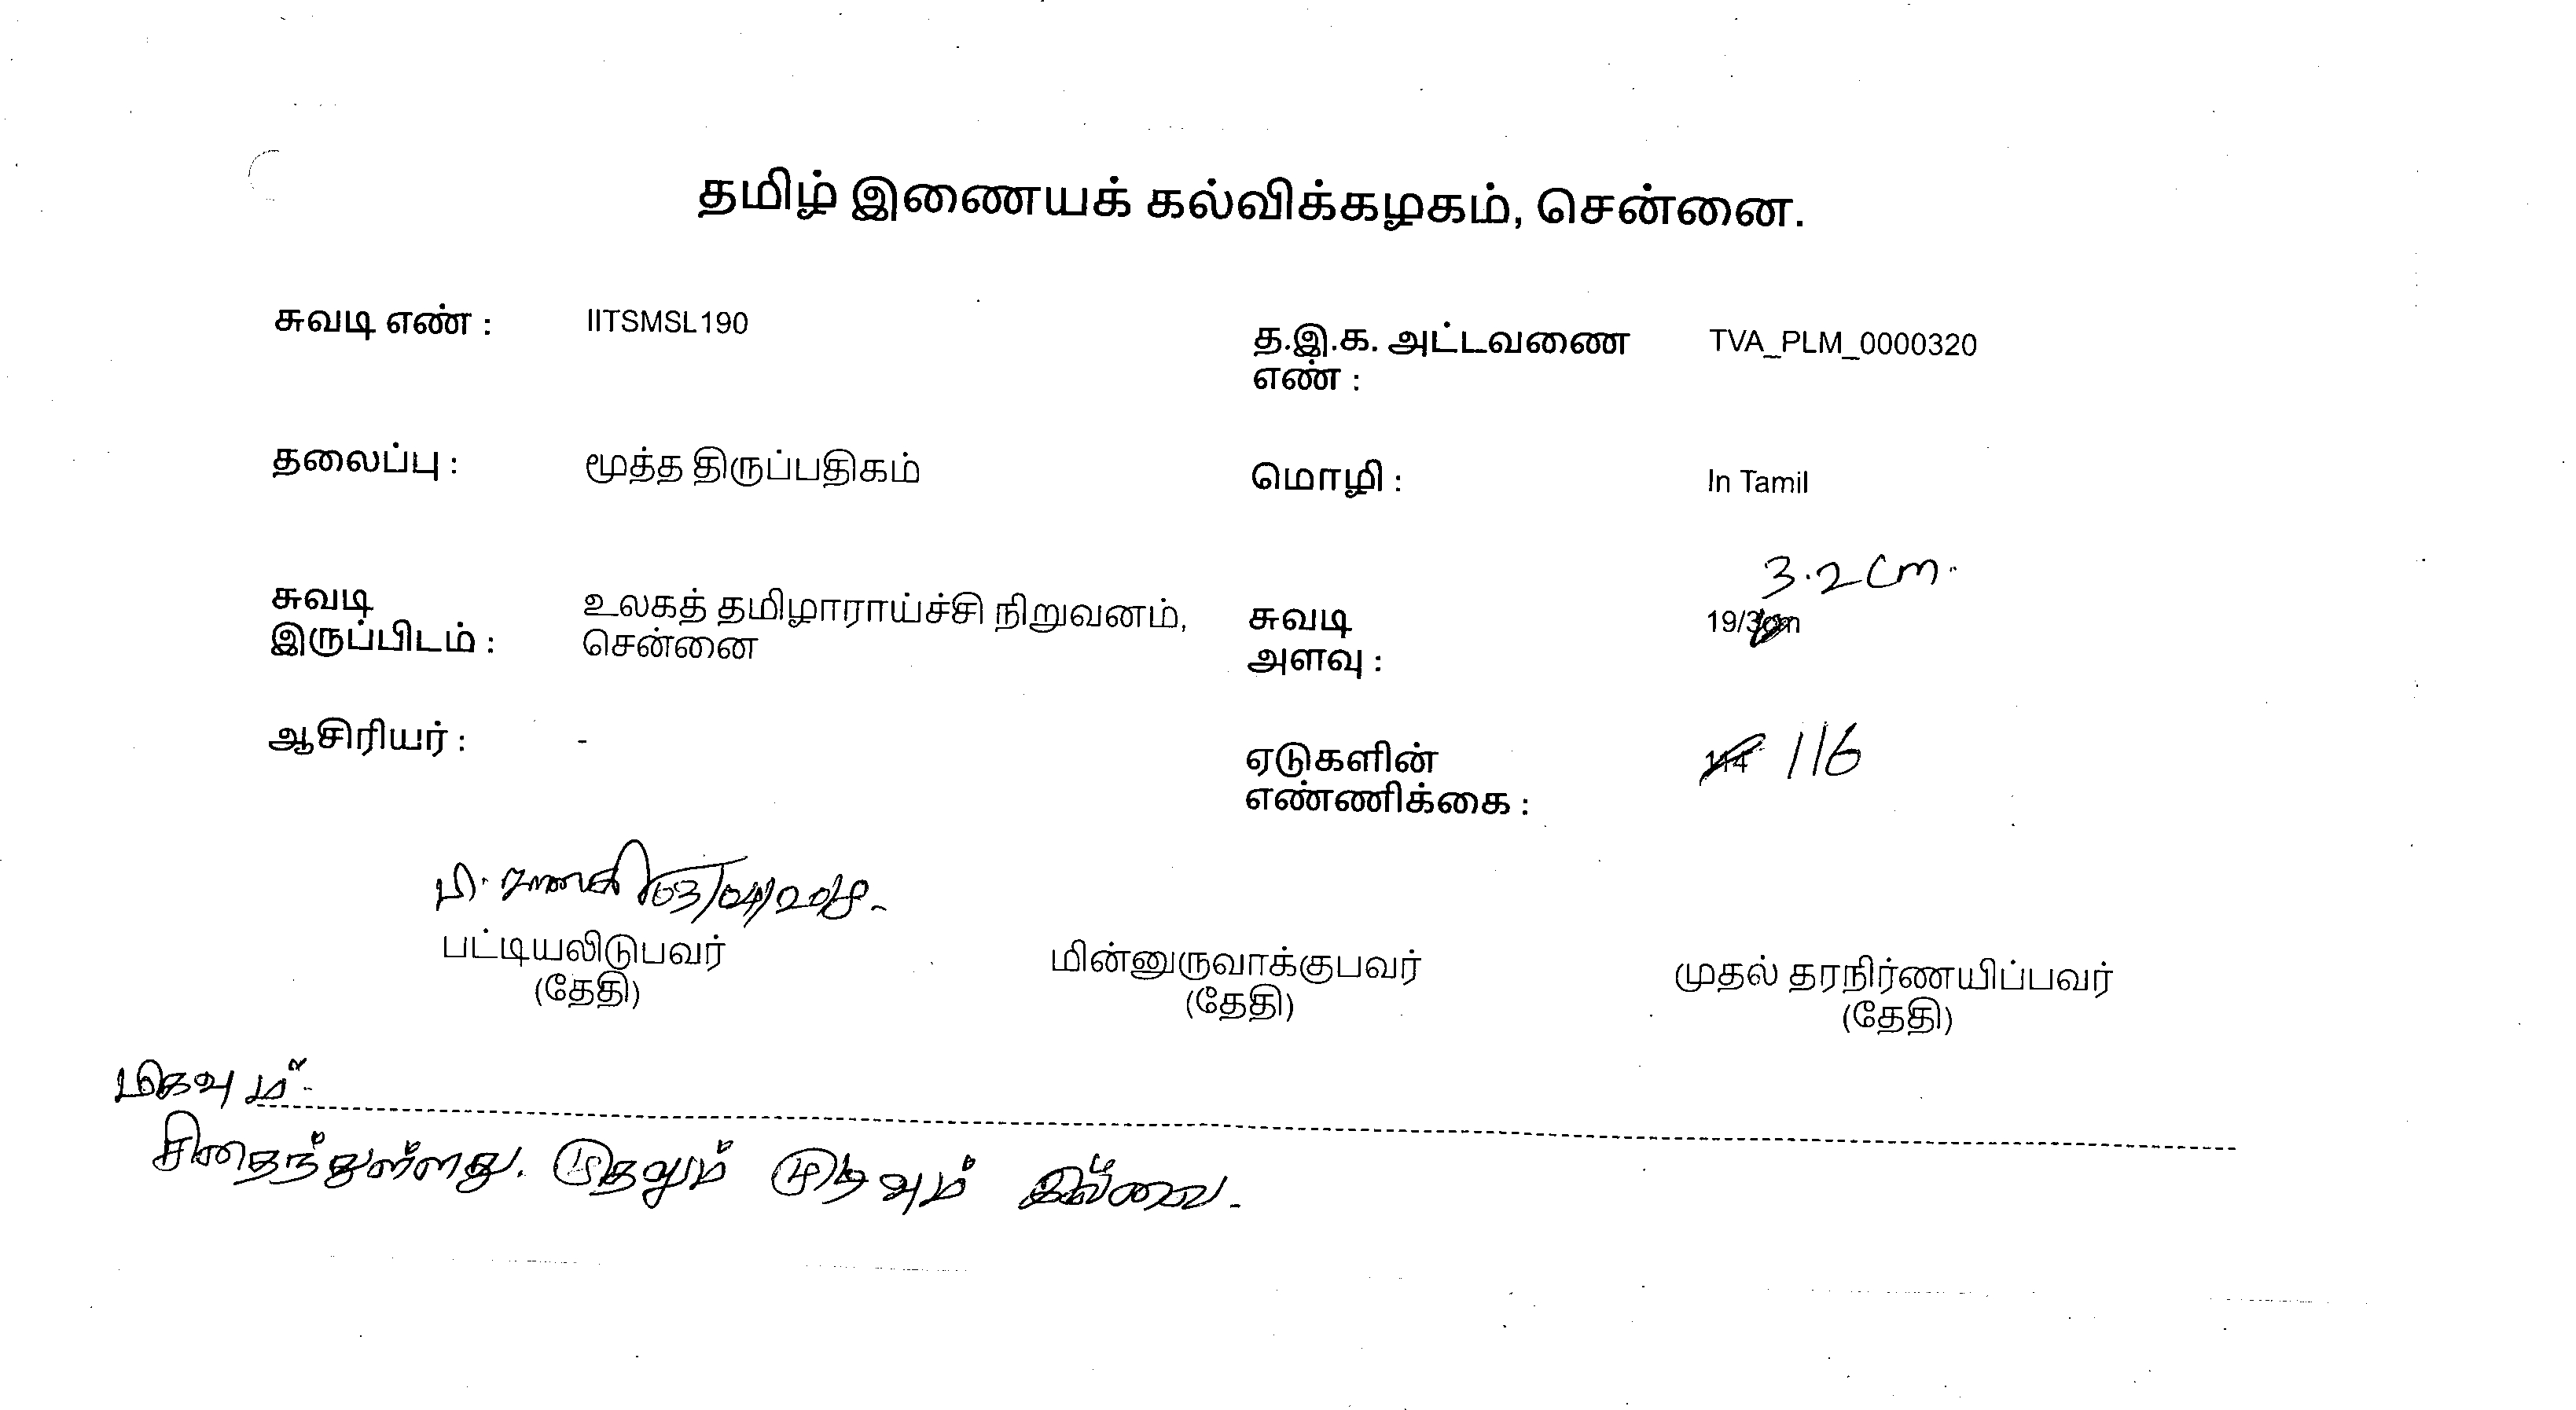 தமிழ் இணையக் கல்விக்கழகம், சென்னை.
சுவடி எண் : IITSMSL190
த.இ.க. அட்டவணை எண் : TVA_PLM_0000320
தலைப்பு : மூத்த திருப்பதிகம்
மொழி : In Tamil
சுவடி இருப்பிடம் : உலகத் தமிழாராய்ச்சி நிறுவனம், சென்னை
3.2 cm.
சுவடி அளவு : 19/3cm
ஆசிரியர் : -
ஏடுகளின் எண்ணிக்கை : 114 116
03/04/2018.
பட்டியலிடுபவர் (தேதி)
மின்னுருவாக்குபவர் (தேதி)
முதல் தரநிர்ணயிப்பவர் (தேதி)
மிகவும்
சிதைந்துள்ளது. முதலும் முடிவும் இல்லை.